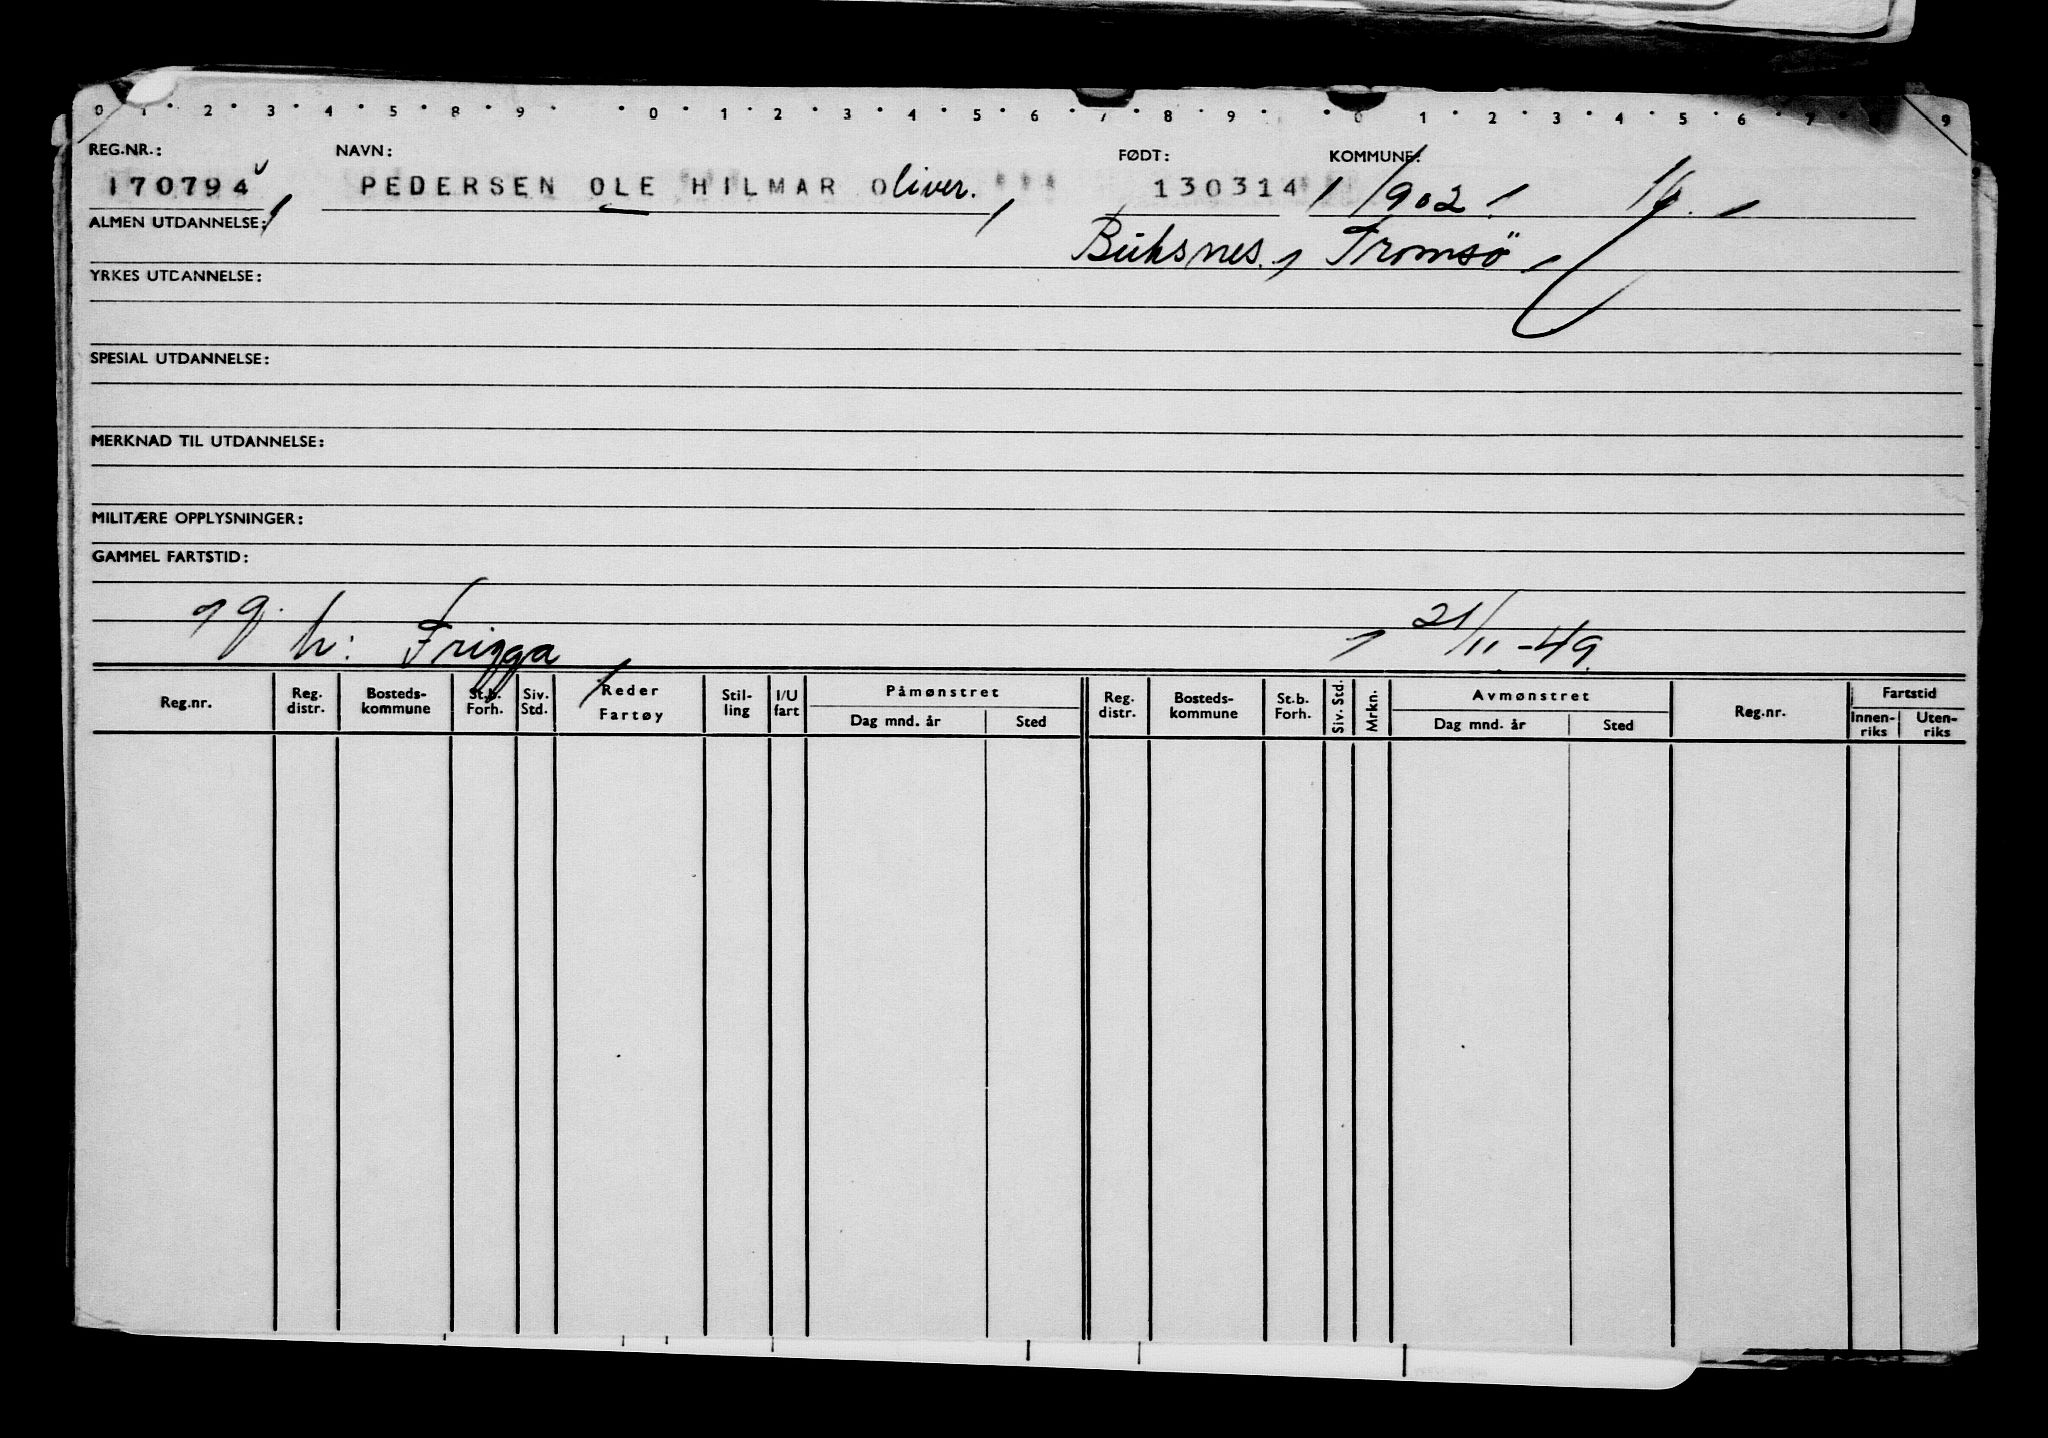 0 1 2 3 4 5 8 9 0 1 2 3 4 5 6 7 8 9 0 1 2 3 4 5 6 7 9
REG.NR.: NAVN: FØDT: KOMMUNE:
170794 PEDERSEN OLE HILMAR Oliver. 130314 1902
ALMEN UTDANNELSE: Buksnes. Tromsö
YRKES UTDANNELSE:
SPESIAL UTDANNELSE:
MERKNAD TIL UTDANNELSE:
MILITÆRE OPPLYSNINGER:
GAMMEL FARTSTID:
h: Frigga 21/11-49.
Reg.nr. Reg. distr. Bosteds- kommune St.b. Forh. Siv. Std. Reder Fartøy Stil- ling I/U fart Påmønstret Dag mnd. år Sted Reg. distr. Bosteds- kommune St.b. Forh. Siv. Std. Mrkn. Avmønstret Dag mnd. år Sted Reg.nr. Fartstid Innen- riks Uten- riks